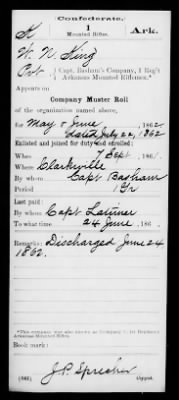 Confederate.
K
1
Mounted Rifles.
Ark.
W. N. King
Pvt, Capt. Basham's Company, 1 Reg't
Arkansas Mounted Riflemen.*
Appears on
Company Muster Roll
of the organization named above,
for May & June, 1862.
dated July 22, 1862
Enlisted and joined for duty and enrolled:
When 7 Sept, 186 .
Where Clarksville
By whom Capt Basham
Period 1 yr
Last paid:
By whom Capt Larimer
To what time 24 June, 186 .
Remarks: Discharged June 24
1862.
Book mark:
J. P. Sprecher
(642) Copyist.